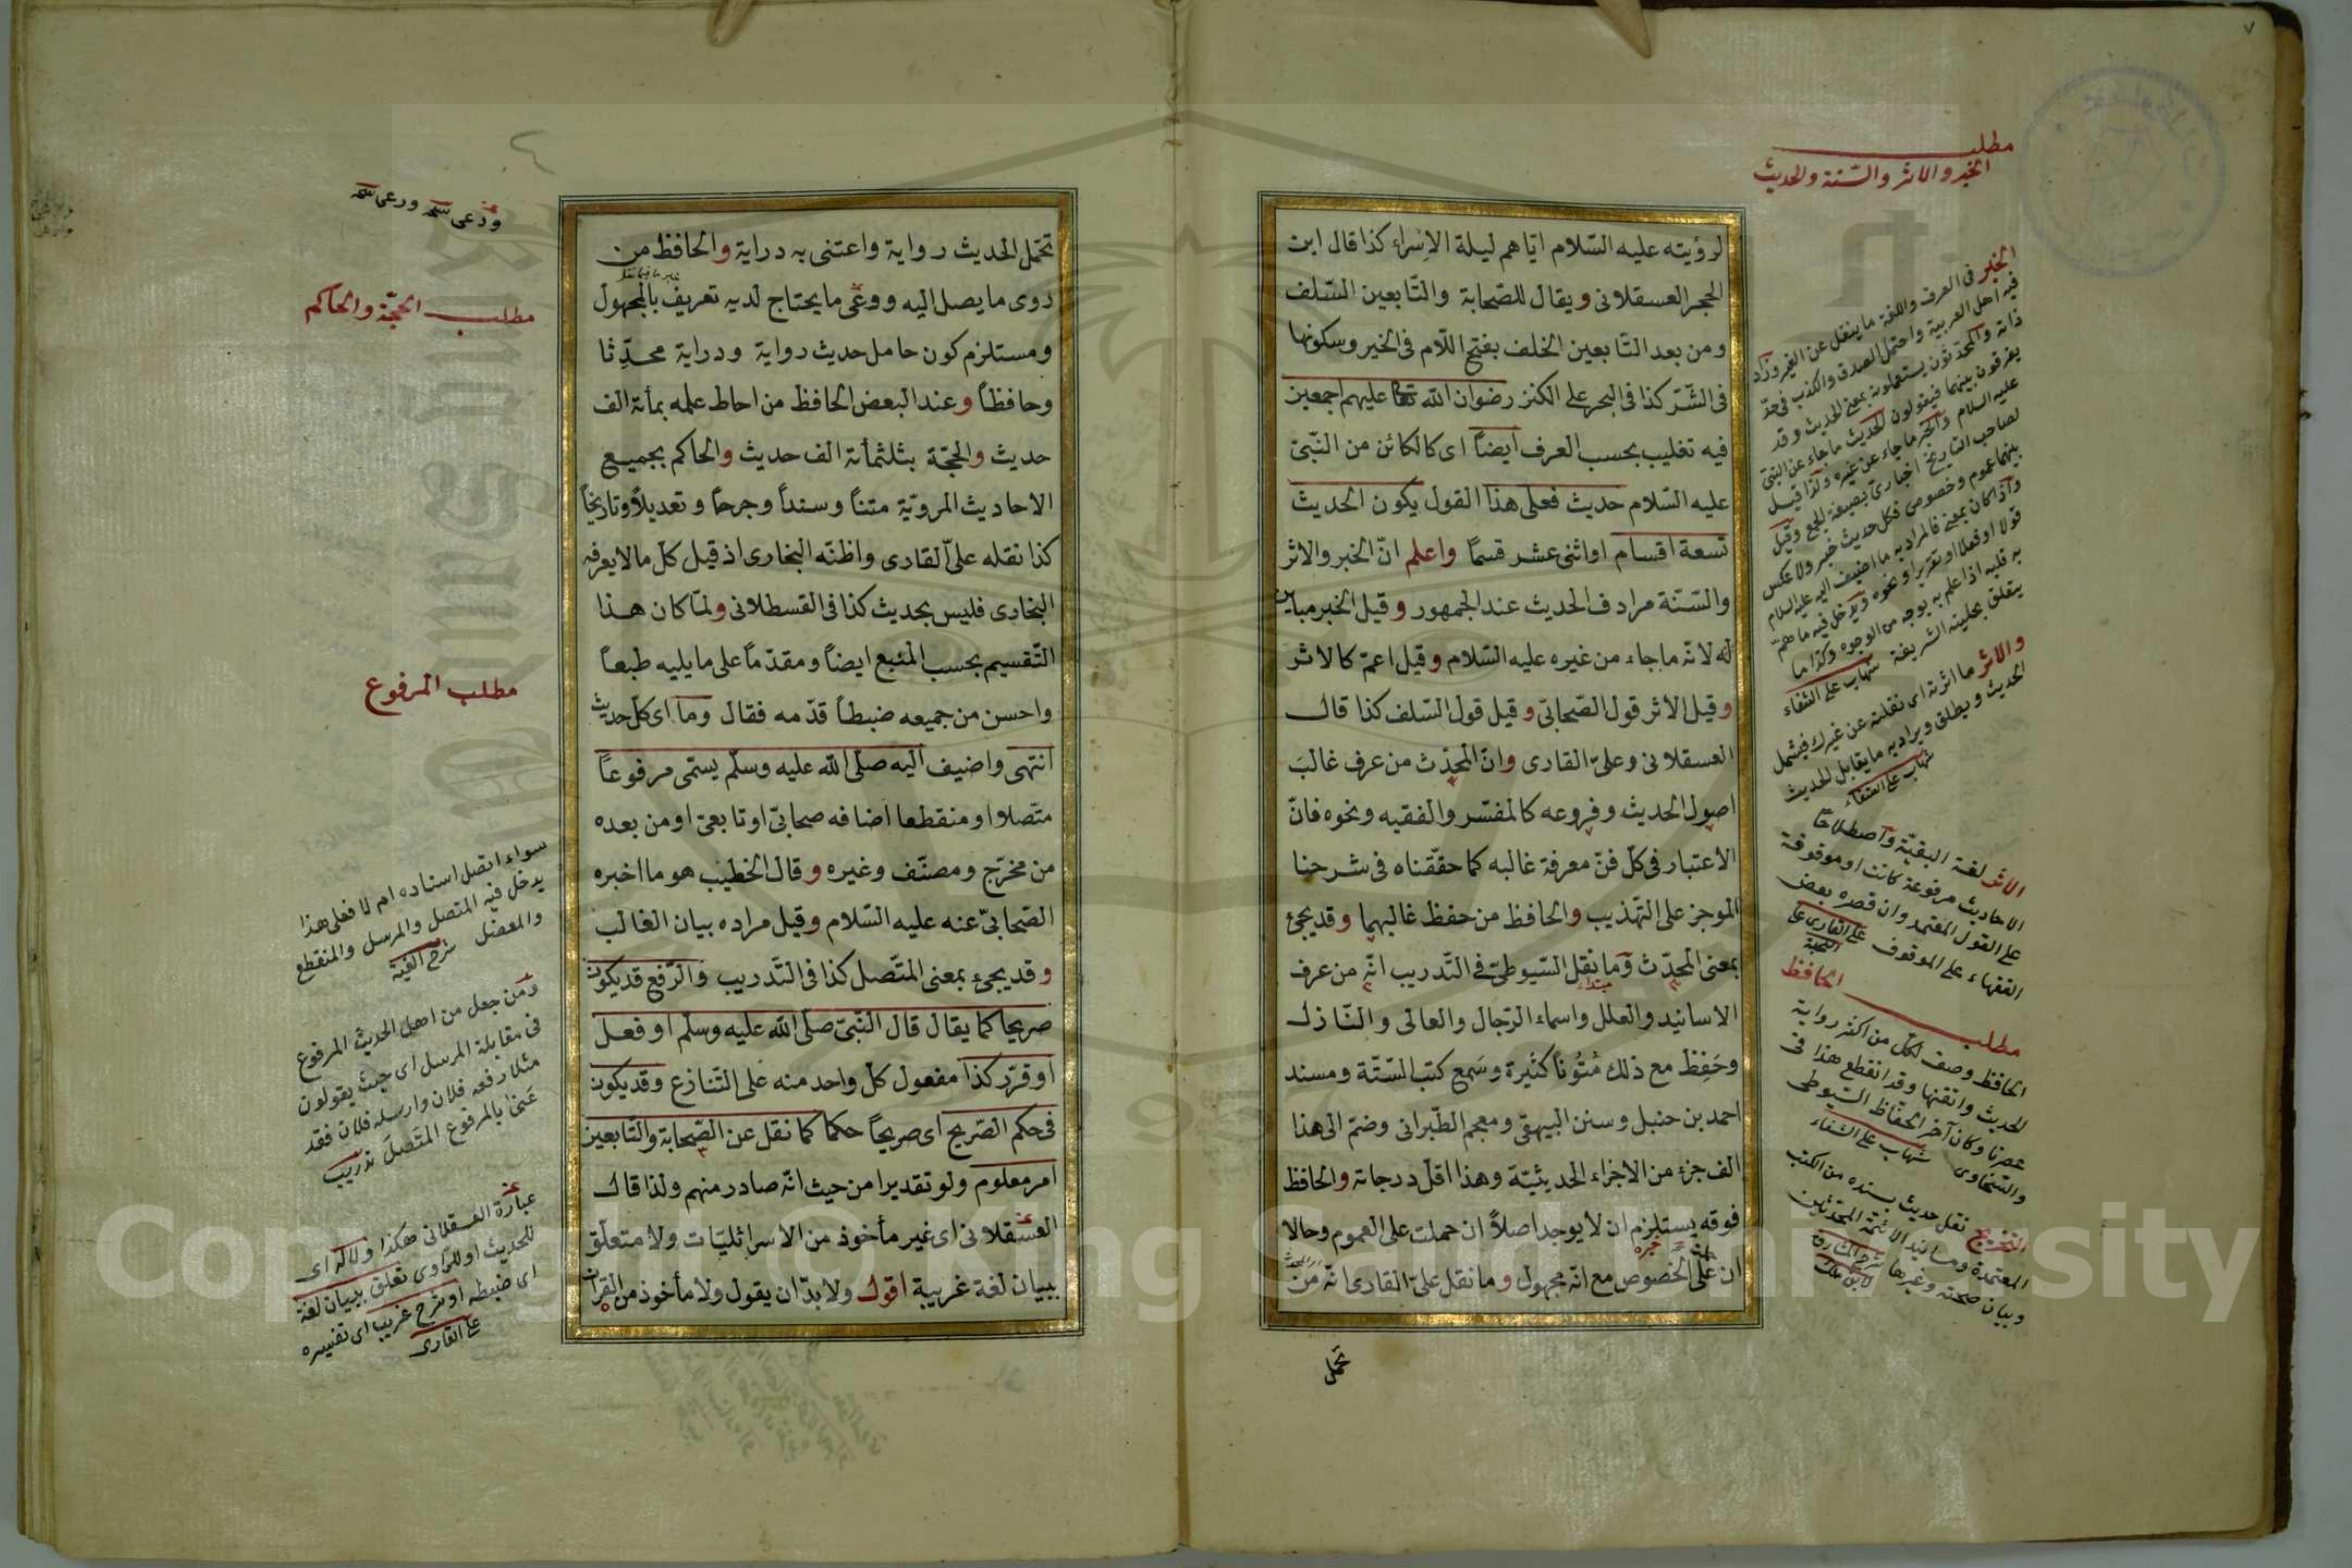 ٧
مطلب
الخبر والاثر والسّنة والحديث
لرؤيته عليه السّلام ايّاهم ليلة الاِسْراء كذا قال ابن
الحجر العسقلانى ويقال للصّحابة والتّابعين السّلف
ومن بعد التّابعين الخلف بفتح اللّام فى الخير وسكونها
فى الشّرّ كذا فى البحر على الكنز رضوان الله تعا عليهم اجمعين
فيه تغليب بحسب العرف ايضاً اى كالكائن من النّبىّ
عليه السّلام حديث فعلى هذا القول يكون الحديث
تسعة اقسام او اثنى عشر قسمًا واعلم انّ الخبر والاثر
والسّنّة مرادف الحديث عند الجمهور وقيل الخبر مباين
له لانّه ما جاء من غيره عليه السّلام وقيل اعمّ كالاثر
وقيل الاثر قول الصّحابىّ وقيل قول السّلف كذا قال
العسقلانى وعلىّ القارى وانّ المحدّث من عرف غالبَ
اصول الحديث وفروعه كالمفسّر والفقيه ونحوه فانّ
الاعتبار فى كلّ فنّ معرفة غالبه كما حقّقناه فى شرحنا
الموجز على التّهذيب والحافظ من حفظ غالبهما وقد يجئ
بمعنى المحدّث وما نقل السّيوطىّ فى التّدريب انّه من عرف
الاسانيد والعلل واسماء الرّجال والعالى والنّازل
وحَفِظ مع ذلك مُتُونًا كثيرة وسَمع كتب السّتّة ومسند
احمد بن حنبل وسنن البيهقى ومعجم الطّبرانى وضمّ الى هذا
الف جزء من الاجزاء الحديثيّة وهذا اقلّ درجاته والحافظ
فوقه يستلزم ان لا يوجد اصلاً ان حملت على العموم وحالا
ان على الخصوص مع انّه مجهول وما نقل علىّ القارى انّه من
تحمّل
الخبر فى العرف واللغة ما ينقل عن الغير وزاد
فيه اهل العربية واحتمل الصدق والكذب فى حدّ
ذاته والمحدّثون يستعملونه بمعنى الحديث وقد
يفرقون بينهما فيقولون الحديث ما جاء عن النبىّ
عليه السلام والخبر ما جاء عن غيره ولذا قيل
لصاحب التاريخ اخبارىّ بصيغة الجمع وقيل
بينهما عموم وخصوص فكل حديث خبر ولا عكس
واذا كان بمعنى فالمراد به ما اضيف اليه عليه السلام
قولا او فعلا او تقريرا او نحوه ويدخل فيه ما همّ
به قلبه اذا علم به بوجه من الوجوه وكذا ما
يتعلق بحليته الشريفة شهاب على الشفاء
والاثر ما اثرته اى نقلته عن غيرك فيشمل
الحديث ويطلق ويراد به ما يقابل الحديث
شهاب على الشفاء
الاثر لغة البقيّة واصطلاحًا
الاحاديث مرفوعة كانت او موقوفة
على القول المعتمد وان قصره بعض
الفقهاء على الموقوف على القارى على
النخبة
مطلب الحافظ
الحافظ وصف لكلّ من اكثر رواية
الحديث واتقنها وقد انقطع هذا فى
عصرنا وكان آخر الحفّاظ السّيوطى
والسّخاوى شهاب على الشفاء
التخريج نقل حديث بسنده من الكتب
المعتمدة ومسانيد الائمّة المحدّثين
وبيان صحته وغيرها شرح المشارق
لابن ملك
تحمّل الحديث رواية واعتنى به دراية والحافظ من
روى ما يصل اليه ووعى ما يحتاج لديه تعريف بالمجهول
ومستلزم كون حامل حديث رواية ودراية محدِّثا
وحافظاً وعند البعض الحافظ من احاط علمه بمأئة الف
حديث والحجّة بثلثمأئة الف حديث والحاكم بجميع
الاحاديث المرويّة متنًا وسنداً وجرحاً وتعديلاً وتاريخاً
كذا نقله علىّ القارى واظنّه البخارى اذ قيل كلّ ما لا يعرفه
البخارى فليس بحديث كذا فى القسطلانى ولمّا كان هذا
التّقسيم بحسب المنبع ايضاً ومقدّماً على ما يليه طبعاً
واحسن من جميعه ضبطاً قدّمه فقال وما اى كلّ حديث
انتهى واضيف اليه صلّى الله عليه وسلّم يسمّى مرفوعاً
متّصلا او منقطعا اضافه صحابىّ او تابعىّ او من بعده
من مخرّج ومصنّف وغيره وقال الخطيب هو ما اخبره
الصّحابىّ عنه عليه السّلام وقيل مراده بيان الغالب
وقد يجئ بمعنى المتّصل كذا فى التّدريب والرّفع قد يكون
صريحا كما يقال قال النّبىّ صلّى الله عليه وسلّم او فعل
او قرّر كذا مفعول كلّ واحد منه على التّنازع وقد يكون
فى حكم الصّريح اى صريحاً حكما كما نقل عن الصّحابة والتّابعين
امر معلوم ولو تقديرا من حيث انّه صادر منهم ولذا قال
العسقلانى اى غير مأخوذ من الاسرائليّات ولا متعلّق
ببيان لغة غريبة اقول ولا بدّ ان يقول ولا مأخوذ من القرآن
مطلب الحجّة والحاكم
مطلب المرفوع
سواء اتصل اسناده ام لا فعلى هذا
يدخل فيه المتصل والمرسل والمنقطع
والمعضل شرح الفية
ومن جعل من اهل الحديث المرفوع
فى مقابلة المرسل اى حيث يقولون
مثلا رفعه فلان وارسله فلان فقد
عنى بالمرفوع المتّصل تدريب
عبارة العسقلانى هكذا ولا له اى
للحديث او للراوى تعلق ببيان لغة
اى ضبطه او شرح غريب اى تفسيره
على القارى
Copyright © King Saud University